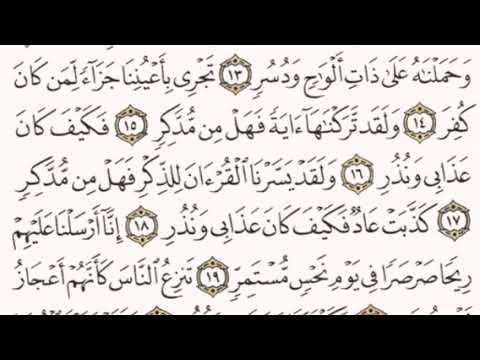 وَحَمَلْنَٰهُ عَلَىٰ ذَاتِ أَلْوَٰحٍ وَدُسُرٍ ١٣ تَجْرِى بِأَعْيُنِنَا جَزَآءً لِّمَن كَانَ
كُفِرَ ١٤ وَلَقَد تَّرَكْنَٰهَآ ءَايَةً فَهَلْ مِن مُّدَّكِرٍ ١٥ فَكَيْفَ كَانَ
عَذَابِى وَنُذُرِ ١٦ وَلَقَدْ يَسَّرْنَا ٱلْقُرْءَانَ لِلذِّكْرِ فَهَلْ مِن مُّدَّكِرٍ
١٧ كَذَّبَتْ عَادٌ فَكَيْفَ كَانَ عَذَابِى وَنُذُرِ ١٨ إِنَّآ أَرْسَلْنَا عَلَيْهِمْ
رِيحًا صَرْصَرًا فِى يَوْمِ نَحْسٍ مُّسْتَمِرٍّ ١٩ تَنزِعُ ٱلنَّاسَ كَأَنَّهُمْ أَعْجَازُ